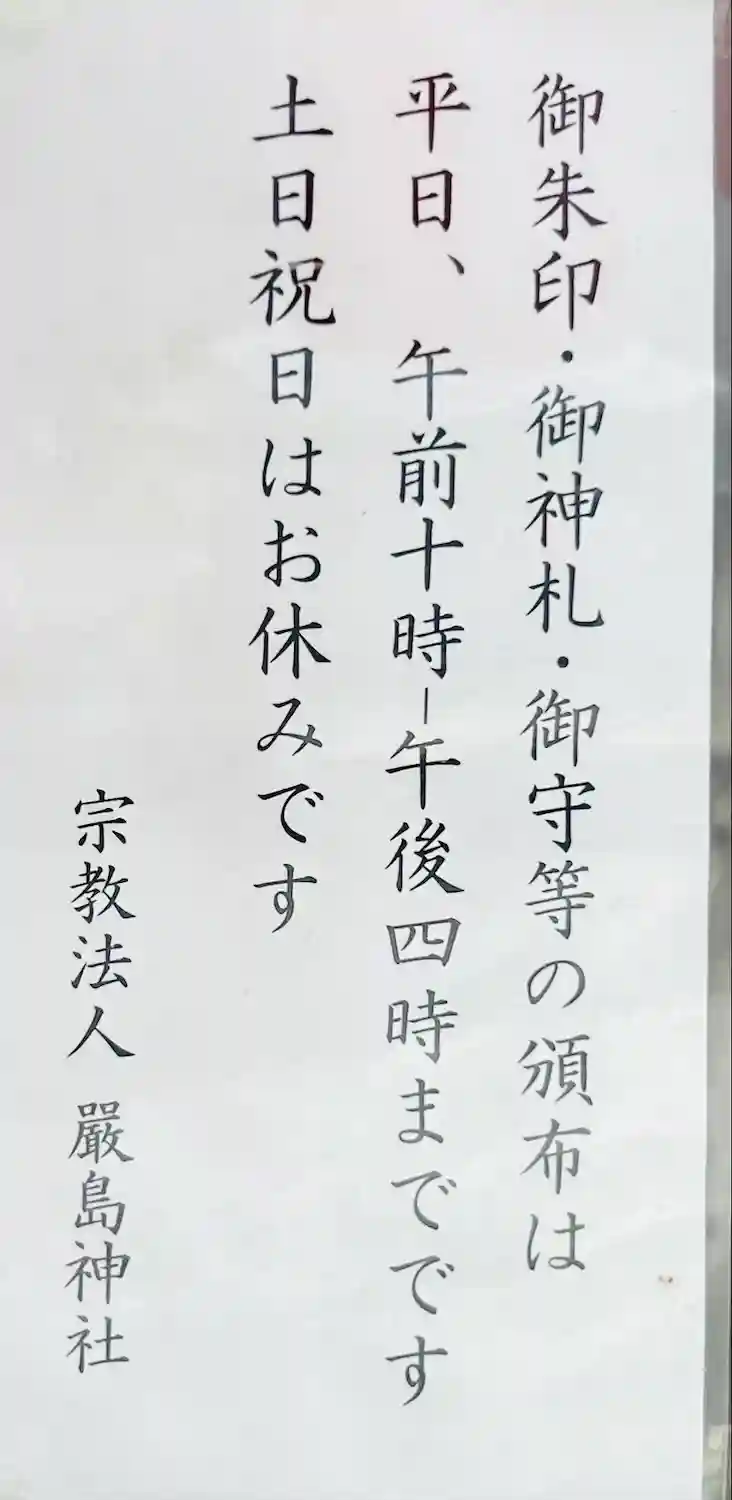 御朱印・御神札・御守等の頒布は
平日、午前十時-午後四時までです
土日祝日はお休みです
宗教法人 嚴島神社